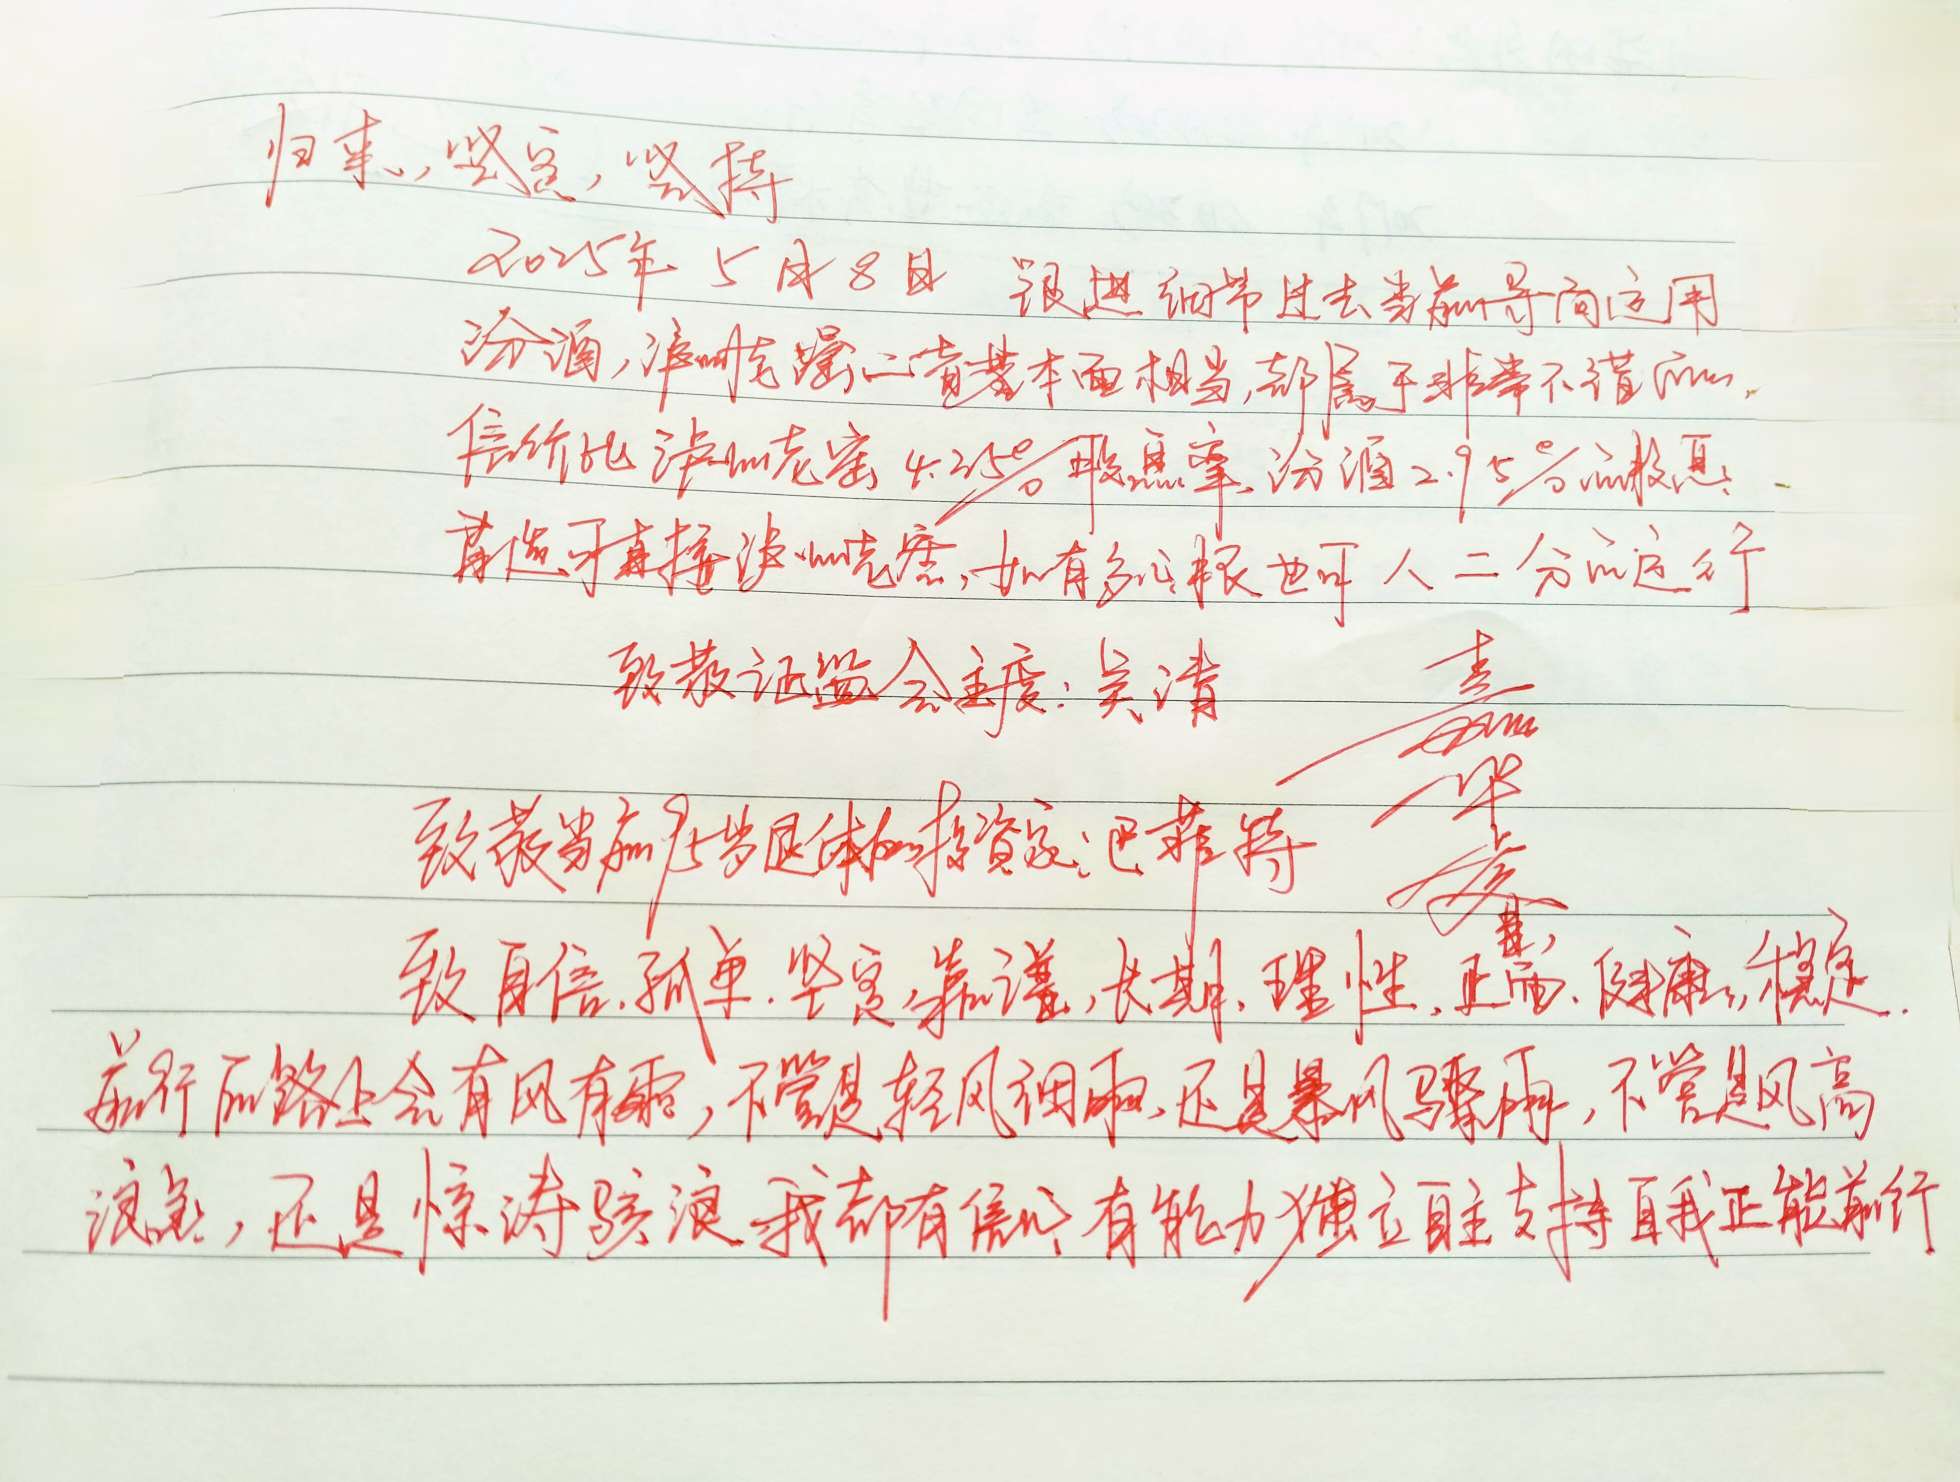 归来,坚定,坚持
2025年5月8日 跟进细节过去当前导向运用
汾酒,泸州老窖二者基本面相当,都属于非常不错的,
估价比泸州老窖4.25%股息率、汾酒2.95%的股息;
首选可直接泸州老窖,如有多余粮也可人二分的运行
致敬证监会主席:吴清
致敬当前95岁退休的投资家:巴菲特
致自信、孤单、坚定,靠谱,长期、理性、正面、健康,稳定.
前行的路上会有风有霜,不管是轻风细雨、还是暴风骤雨,不管是风高
浪急,还是惊涛骇浪 我都有信心有能力独立自主支持自我正能前行